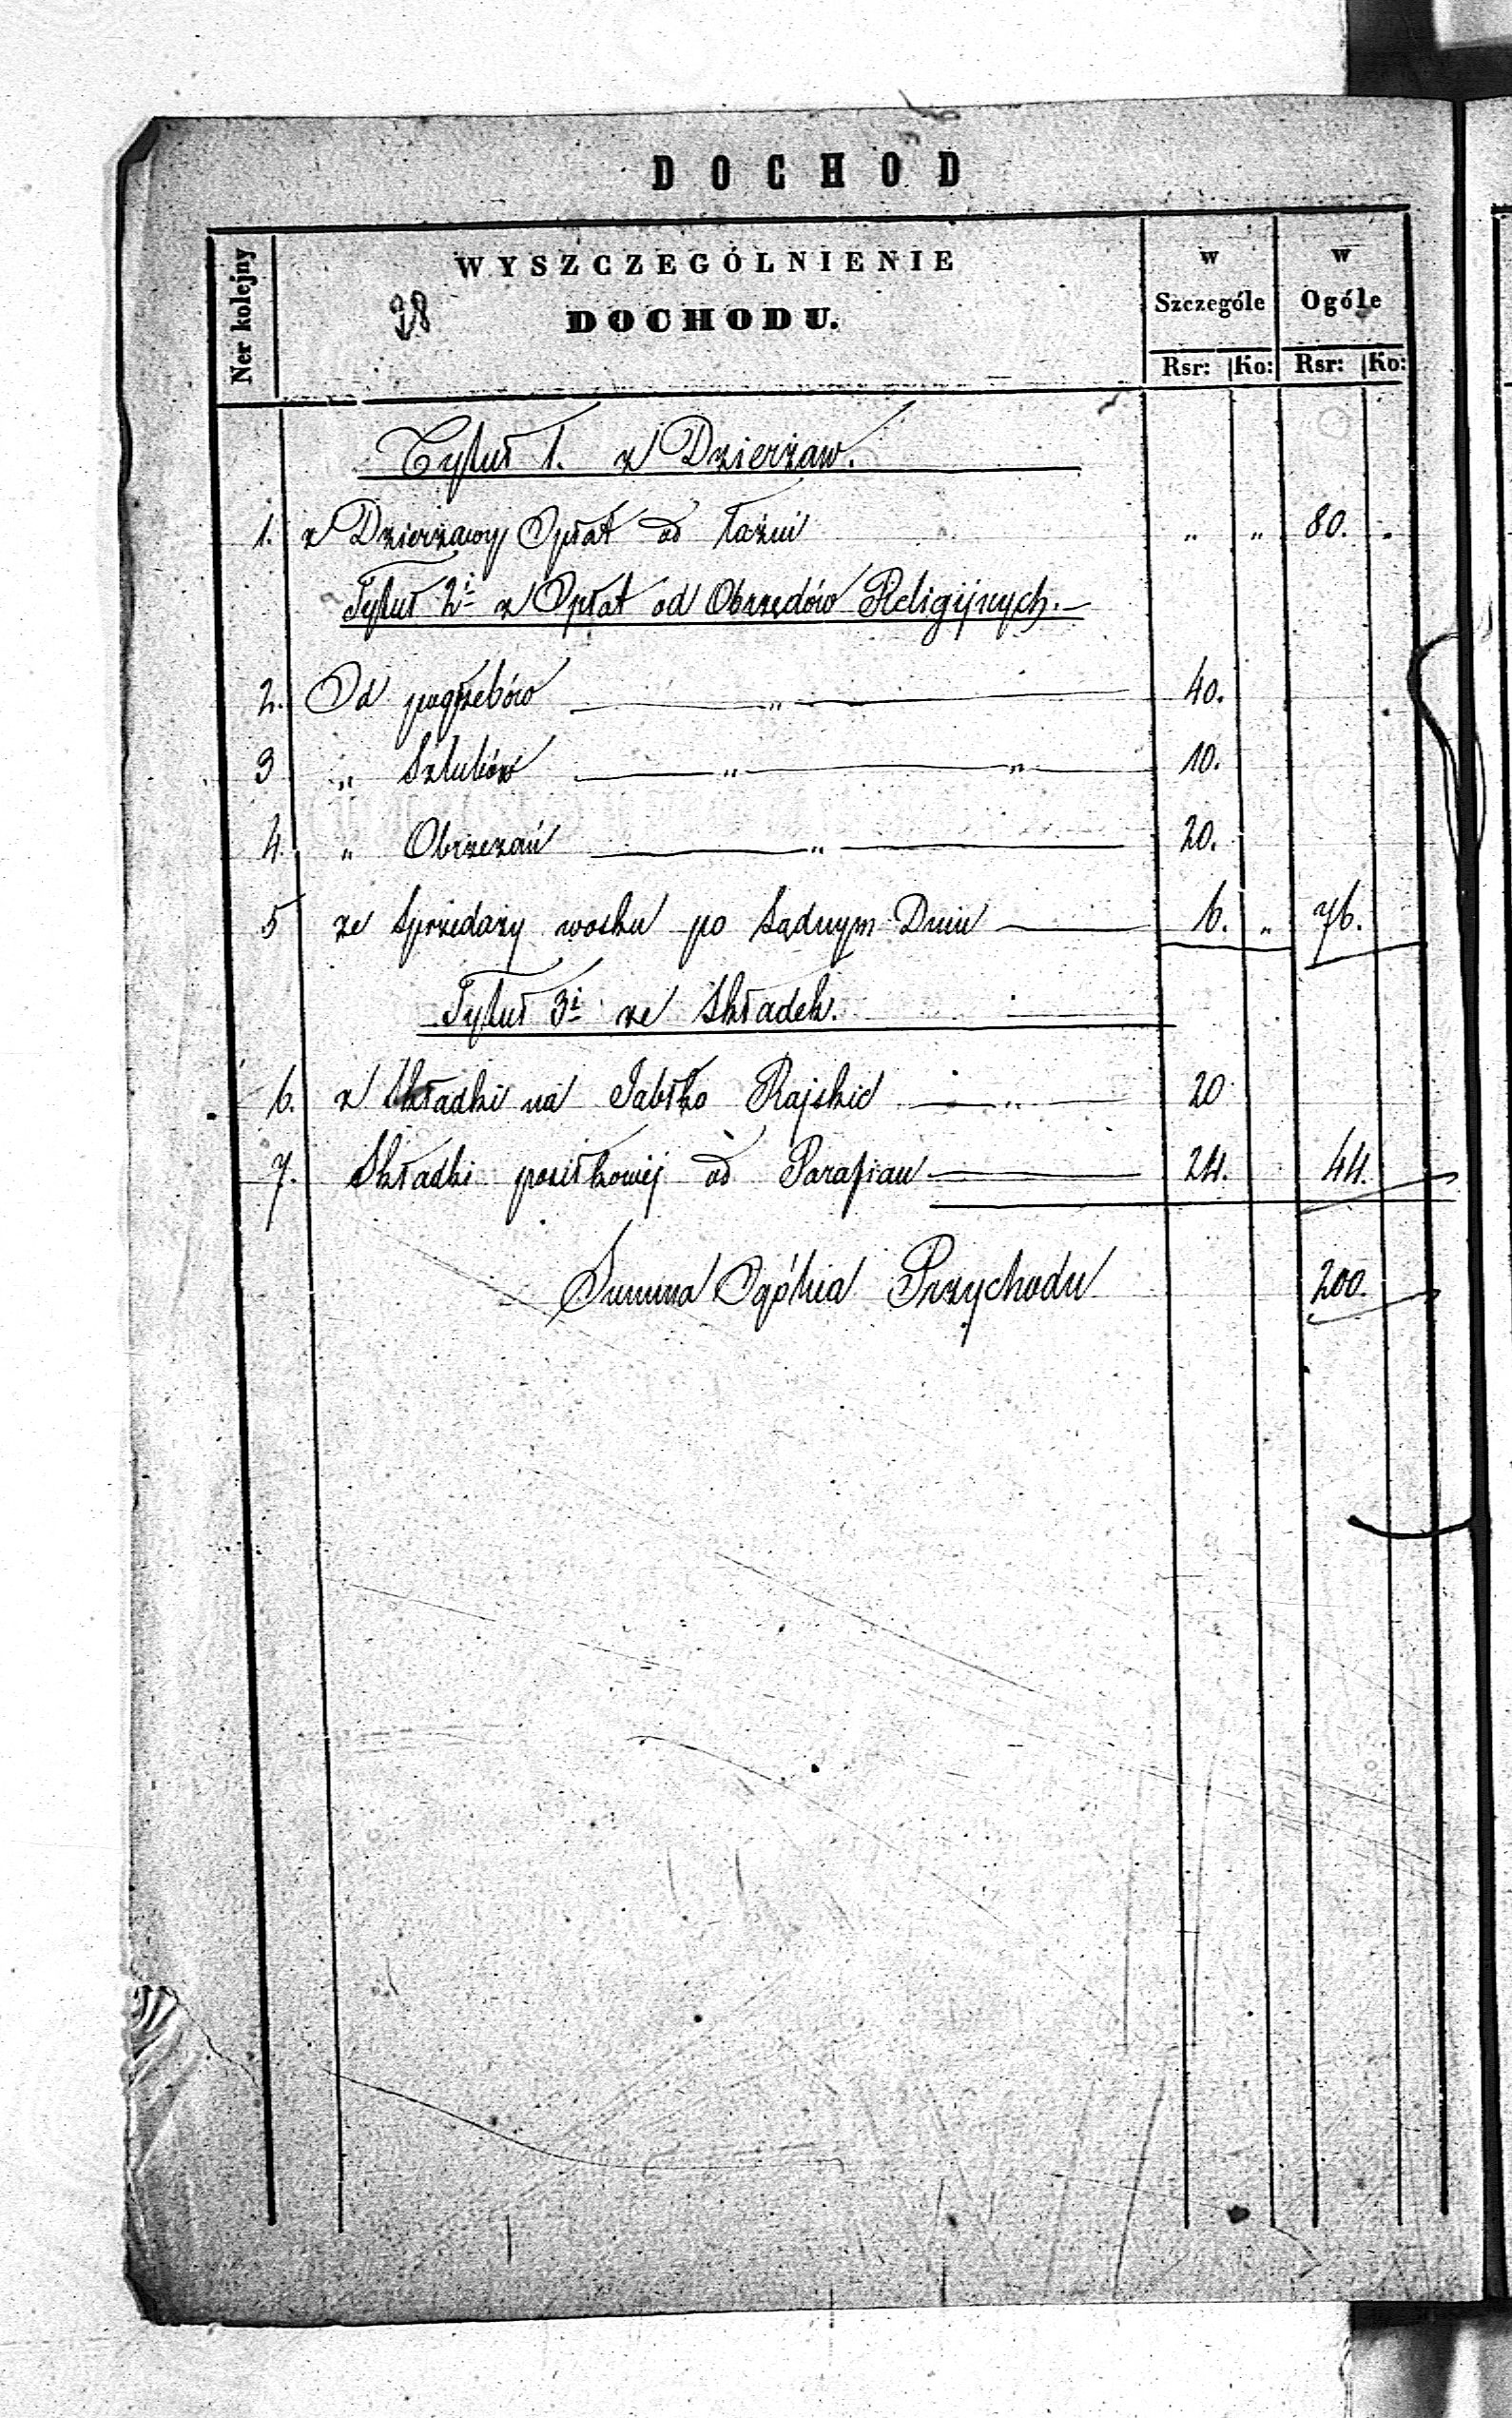 DOCHOD
Ner kolejny
WYSZCZEGÓLNIENIE
DOCHODU.
28
w Szczególe
w Ogóle
Rsr: Ko: Rsr: Ko:
Tytuł 1. z Dzierżaw.
1. z Dzierżawy Opłat od Łaźni " " 80. "
Tytuł 2i z Opłat od Obrzędów Religijnych.
2. Od pogrzebów " 40.
3 " Szlubów " " 10.
4. " Obrzezań " 20.
5 ze Sprzedaży wosku po Sądnym Dniu 6. " 76.
Tytuł 3i ze Składek.
6. z Składki na Jabłko Rajskie " 20
7. Składki posiłkowéj od Parafian 24. 44.
Summa Ogólna Przychodu 200.